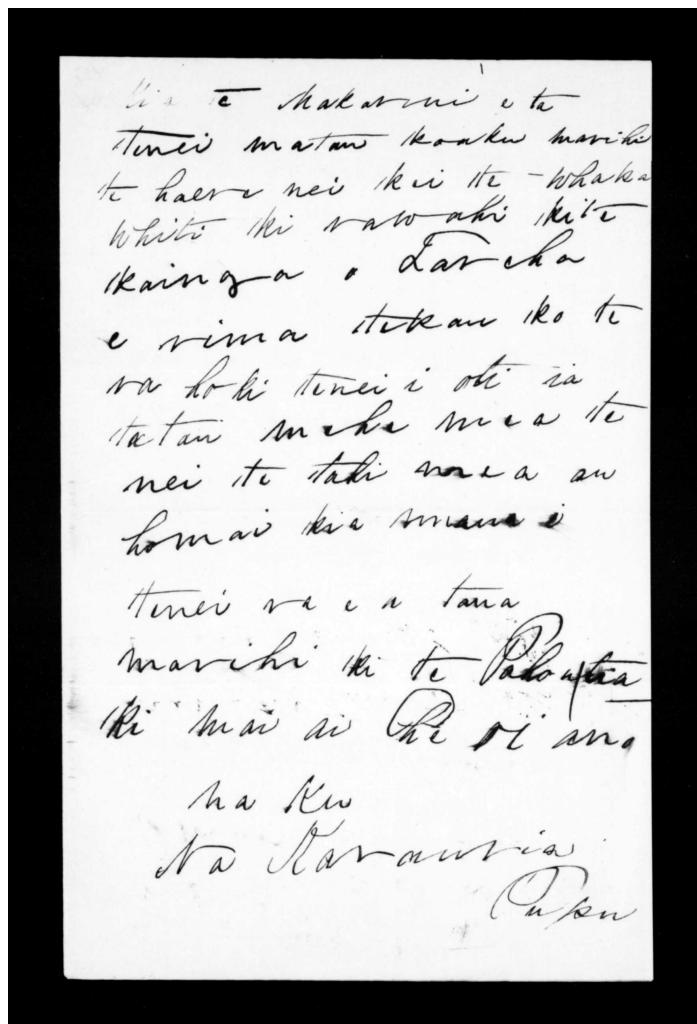 Kia te Makarini e ta
tenei matau ko aku marihi
te haere nei kei te whaka
whiti ki rawahi ki te
kainga o Tareha
e rima tekau ko te
ra hoki tenei i oti ia
tatau mehe mea te
nei te tahi mea au
homai kia mau i
tenei ra e a tana
marihi ki te
ki mai ai
na Ku
Na Karauria
Pupu